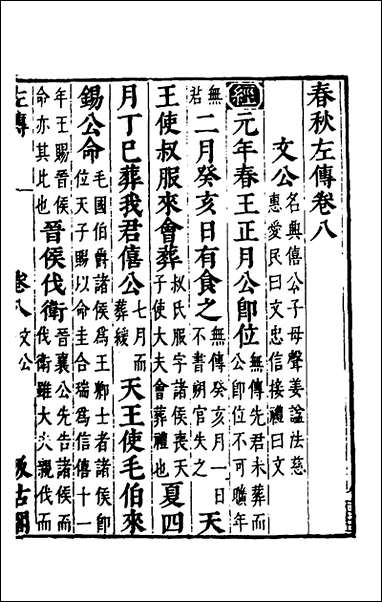 春秋左傳卷八
文公 名興僖公子母聲姜諡法慈惠愛民曰文忠信接禮曰文
經 元年春王正月公即位 無傳先君未葬而公即位不可曠年
無君 二月癸亥日有食之 無傳癸亥月一日不書朔官失之 天
王使叔服來會葬 叔氏服字諸侯喪天子使大夫會葬禮也 夏四
月丁巳葬我君僖公 七月而葬緩 天王使毛伯來
錫公命 毛國伯爵諸侯爲王卿士者諸侯即位天子賜以命圭合瑞爲信僖十一
年王賜晉侯命亦其比也 晉侯伐衛 晉襄公先告諸侯而伐衛雖大夫親伐而
左傳 卷八 文公 汲古閣